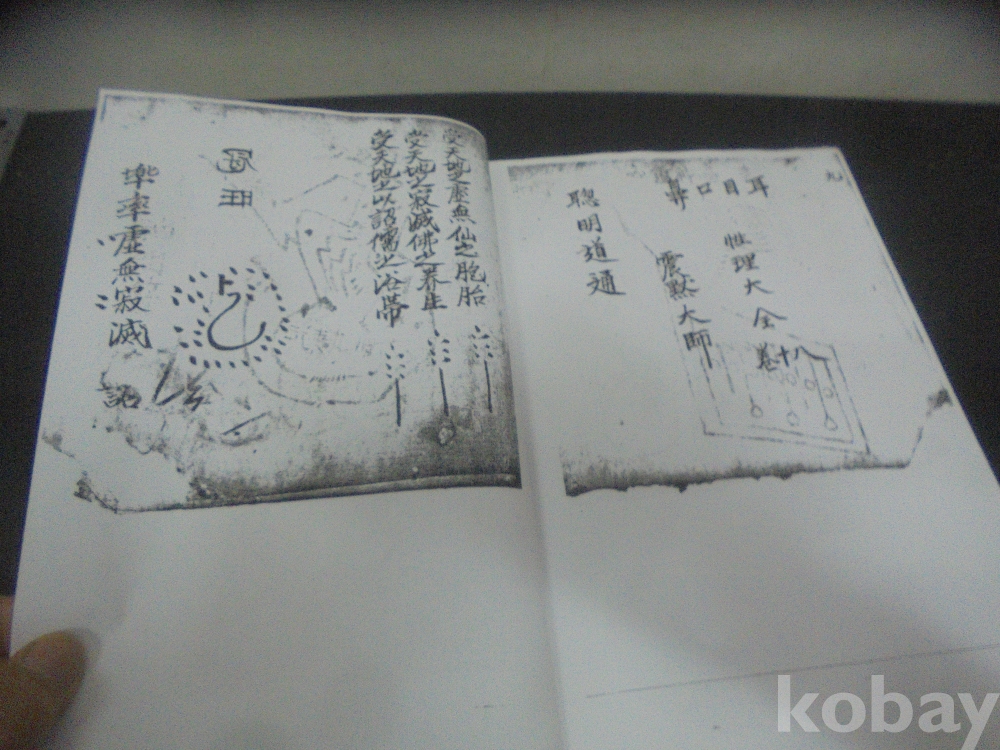 九
耳目口鼻
性理大全
八十卷
震黙大師
聰明道通
受天地之虛無仙之胞胎
受天地之寂滅佛之養生
受天地之以詔儒之浴帶
旺
率虛無寂滅
詔
kobay